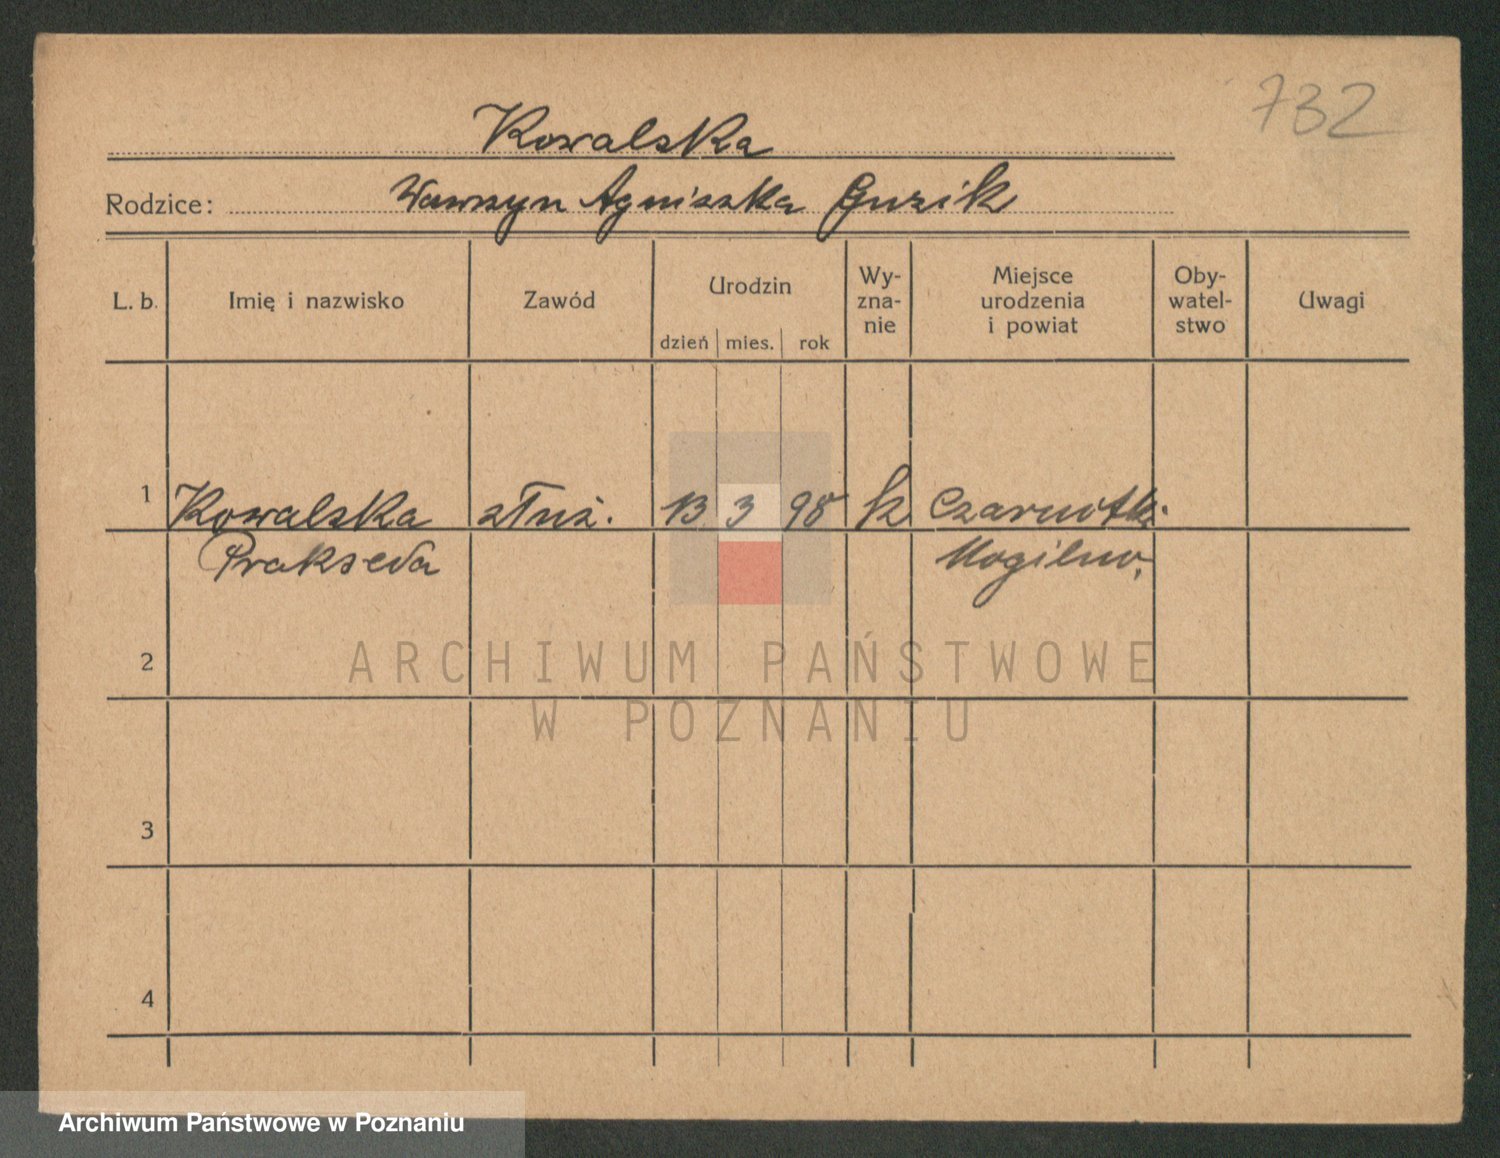 732
Kowalska
Rodzice: Wawrzyn Agniszka Guzik
L. b. Imię i nazwisko Zawód Urodzin dzień mies. rok Wy-zna-nie Miejsce urodzenia i powiat Oby-watel-stwo Uwagi
1 Kowalska służ. 13 3 98 k Czarnotk.
Prakseda Mogilno.
2
ARCHIWUM PAŃSTWOWE
W POZNANIU
3
4
Archiwum Państwowe w Poznaniu